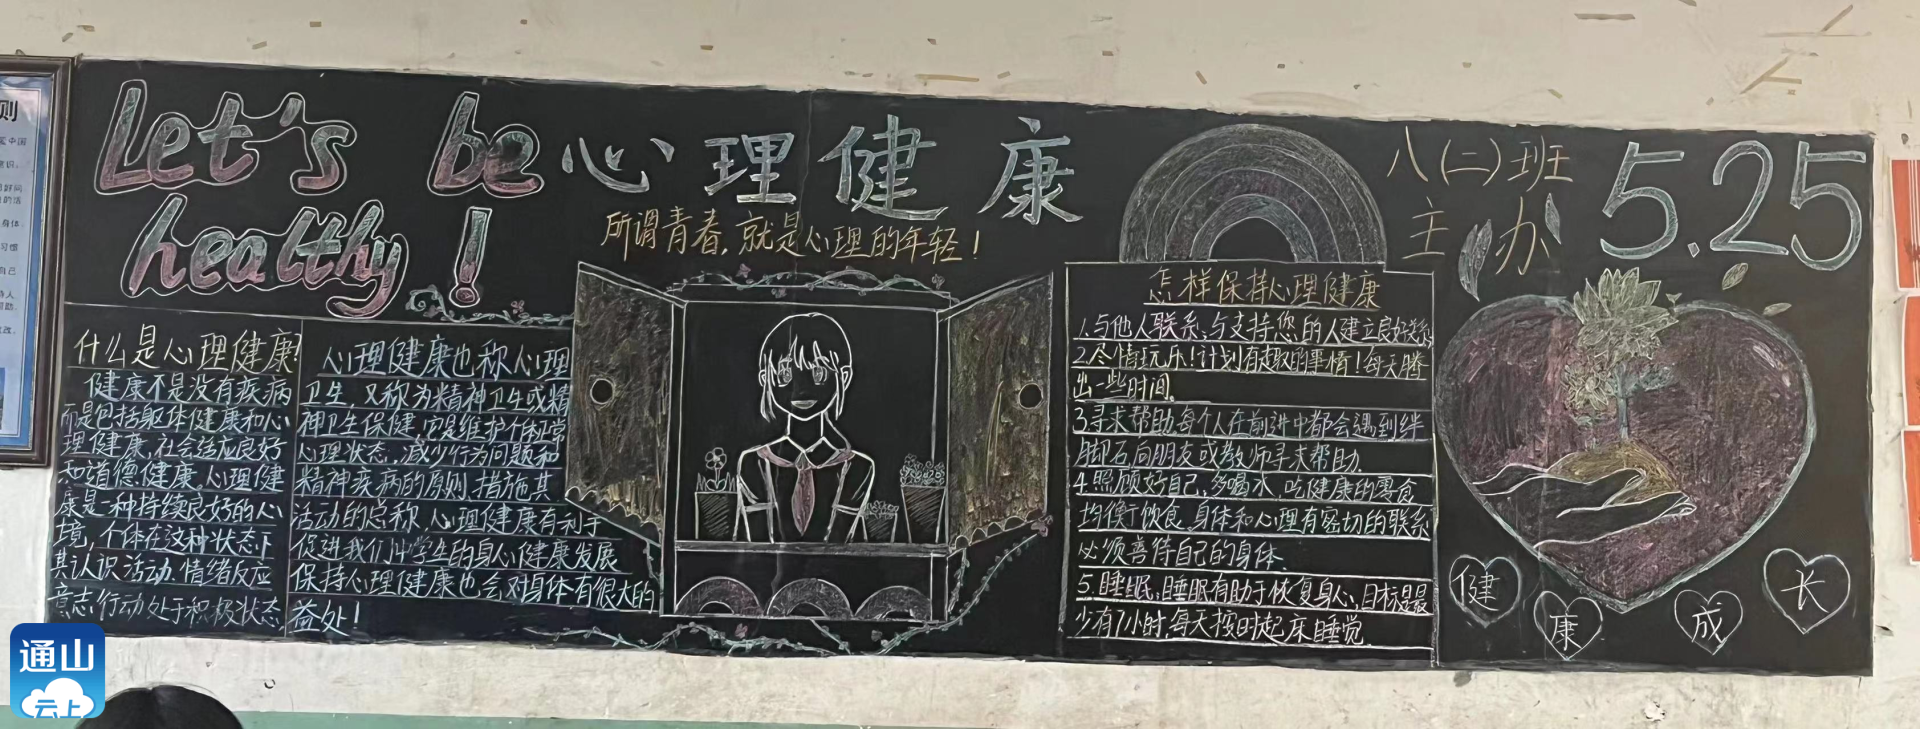 Let's be
healthy!
心理健康
所谓青春,就是心理的年轻!
八(二)班
主办
5.25
什么是心理健康?
健康不是没有疾病
而是包括躯体健康和心
理健康,社会适应良好
和道德健康。心理健
康是一种持续良好的心
境,个体在这种状态下
其认识活动.情绪反应
意志行动处于积极状态
心理健康也称心理
卫生,又称为精神卫生或精
神卫生保健,它是维护个体正常
心理状态,减少行为问题和
精神疾病的原则.措施其
活动的总称,心理健康有利于
促进我们中学生的身心健康发展
保持心理健康也会对身体有很大的
益处!
怎样保持心理健康
1.与他人联系,与支持您的人建立良好联系
2.尽情玩乐!计划有趣的事情!每天腾
出一些时间。
3.寻求帮助,每个人在前进中都会遇到绊
脚石向朋友或教师寻求帮助.
4.照顾好自己,多喝水,吃健康的零食
均衡饮食,身体和心理有密切的联系
必须善待自己的身体.
5.睡眠:睡眠有助于恢复身心,目标是最
少有7小时,每天按时起床睡觉
健
康
成
长
则
通山
云上